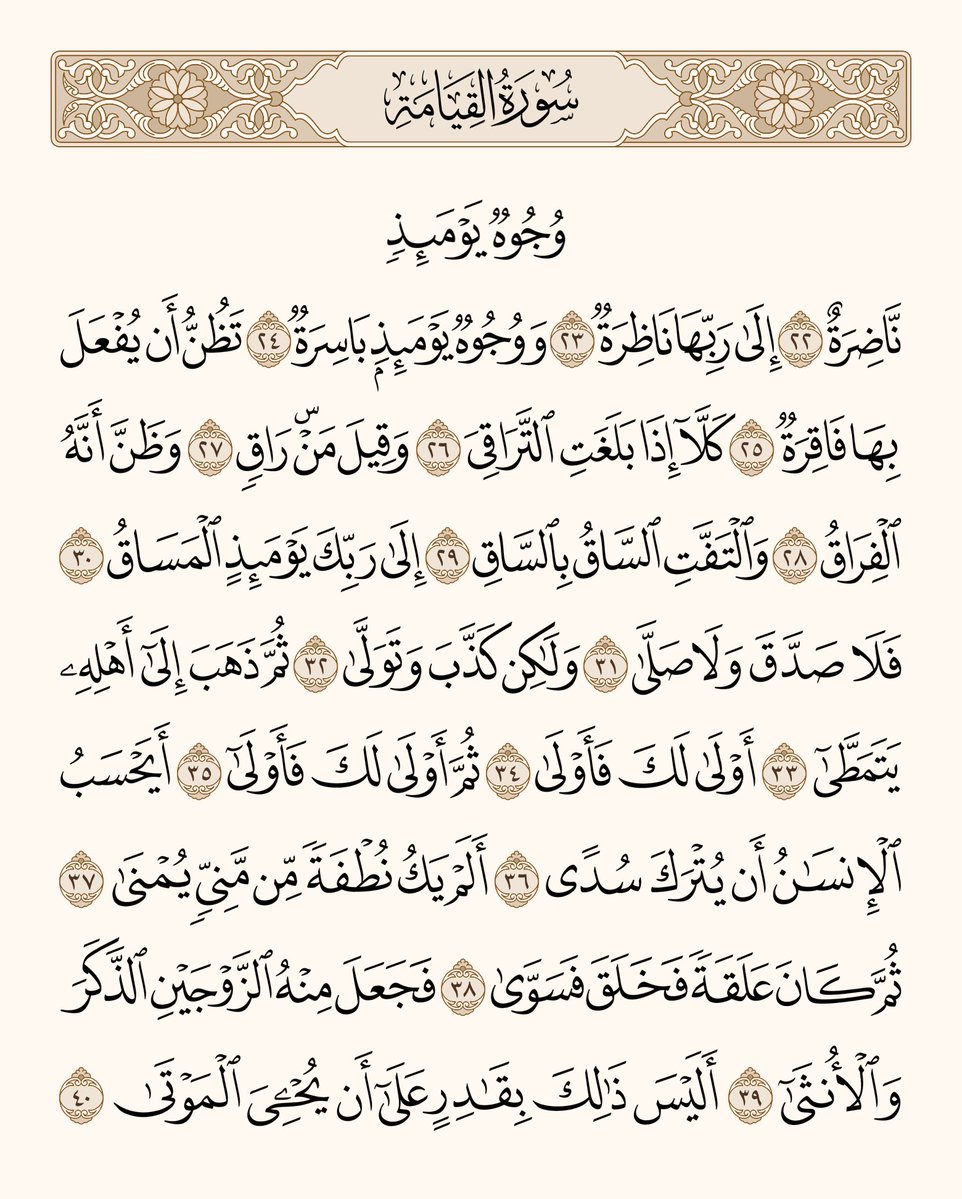 سُورَةُ القِيَامَةِ
وُجُوهٌ يَوۡمَئِذٖ
نَّاضِرَةٌ ٢٢ إِلَىٰ رَبِّهَا نَاظِرَةٞ ٢٣ وَوُجُوهٞ يَوۡمَئِذِۭ بَاسِرَةٞ ٢٤ تَظُنُّ أَن يُفۡعَلَ
بِهَا فَاقِرَةٞ ٢٥ كَلَّآ إِذَا بَلَغَتِ ٱلتَّرَاقِيَ ٢٦ وَقِيلَ مَنۡۜ رَاقٖ ٢٧ وَظَنَّ أَنَّهُ
ٱلۡفِرَاقُ ٢٨ وَٱلۡتَفَّتِ ٱلسَّاقُ بِٱلسَّاقِ ٢٩ إِلَىٰ رَبِّكَ يَوۡمَئِذٍ ٱلۡمَسَاقُ ٣٠
فَلَا صَدَّقَ وَلَا صَلَّىٰ ٣١ وَلَٰكِن كَذَّبَ وَتَوَلَّىٰ ٣٢ ثُمَّ ذَهَبَ إِلَىٰٓ أَهۡلِهِۦ
يَتَمَطَّىٰٓ ٣٣ أَوۡلَىٰ لَكَ فَأَوۡلَىٰ ٣٤ ثُمَّ أَوۡلَىٰ لَكَ فَأَوۡلَىٰٓ ٣٥ أَيَحۡسَبُ
ٱلۡإِنسَٰنُ أَن يُتۡرَكَ سُدًى ٣٦ أَلَمۡ يَكُ نُطۡفَةٗ مِّن مَّنِيّٖ يُمۡنَىٰ ٣٧
ثُمَّ كَانَ عَلَقَةٗ فَخَلَقَ فَسَوَّىٰ ٣٨ فَجَعَلَ مِنۡهُ ٱلزَّوۡجَيۡنِ ٱلذَّكَرَ
وَٱلۡأُنثَىٰٓ ٣٩ أَلَيۡسَ ذَٰلِكَ بِقَٰدِرٍ عَلَىٰٓ أَن يُحۡـِۧيَ ٱلۡمَوۡتَىٰ ٤٠